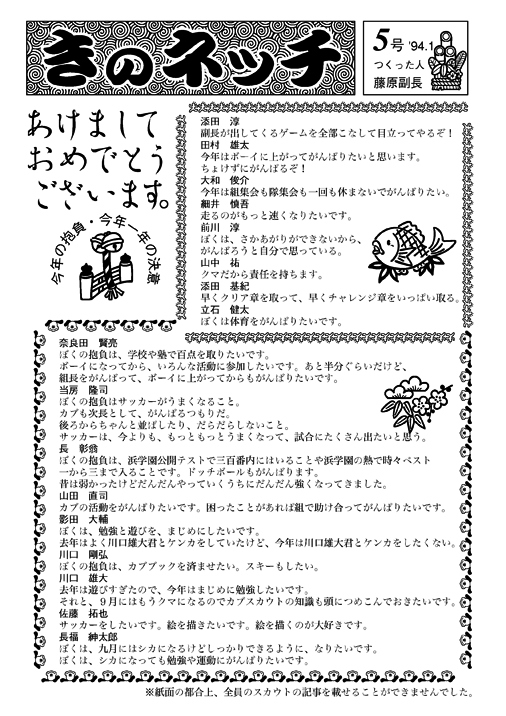 きのネッチ
5号 '94.1
つくった人
藤原副長
あけまして
おめでとう
ございます。
今年の抱負・今年一年の決意
添田 淳
副長が出してくるゲームを全部こなして目立ってやるぞ！
田村 雄太
今年はボーイに上がってがんばりたいと思います。
ちょけずにがんばるぞ！
大和 俊介
今年は組集会も隊集会も一回も休まないでがんばりたい。
細井 慎吾
走るのがもっと速くなりたいです。
前川 淳
ぼくは、さかあがりができないから、
がんばろうと自分で思っている。
山中 祐
クマだから責任を持ちます。
添田 基紀
早くクリア章を取って、早くチャレンジ章をいっぱい取る。
立石 健太
ぼくは体育をがんばりたいです。
奈良田 賢亮
ぼくの抱負は、学校や塾で百点を取りたいです。
ボーイになってから、いろんな活動に参加したいです。あと半分ぐらいだけど、
組長をがんばって、ボーイに上がってからもがんばりたいです。
当房 隆司
ぼくの抱負はサッカーがうまくなること。
カブも次長として、がんばるつもりだ。
後ろからちゃんと並ばしたり、だらだらしないこと。
サッカーは、今よりも、もっともっとうまくなって、試合にたくさん出たいと思う。
長 彰翁
ぼくの抱負は、浜学園公開テストで三百番内にはいることや浜学園の熱で時々ベスト
一から三まで入ることです。ドッチボールもがんばります。
昔は弱かったけどだんだんやっていくうちにだんだん強くなってきました。
山田 直司
カブの活動をがんばりたいです。困ったことがあれば組で助け合ってがんばりたいです。
影田 大輔
ぼくは、勉強と遊びを、まじめにしたいです。
去年はよく川口雄大君とケンカをしていたけど、今年は川口雄大君とケンカをしたくない。
川口 剛弘
ぼくの抱負は、カブブックを済ませたい。スキーもしたい。
川口 雄大
去年は遊びすぎたので、今年はまじめに勉強したいです。
それと、９月にはもうクマになるのでカブスカウトの知識も頭につめこんでおきたいです。
佐藤 拓也
サッカーをしたいです。絵を描きたいです。絵を描くのが大好きです。
長福 紳太郎
ぼくは、九月にはシカになるけどしっかりできるように、なりたいです。
ぼくは、シカになっても勉強や運動にがんばりたいです。
※紙面の都合上、全員のスカウトの記事を載せることができませんでした。